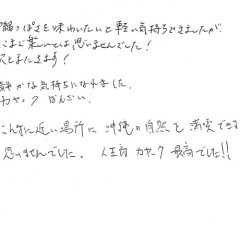 縄っぽさを味わいたいと軽い気持ちできましたが
こまで楽しいとは思いませんでした!
またきます!
静かな気持ちになれました。
カヤック ばんざい。
こんなに近い場所に 沖縄の自然を 満喫できる
思いませんでした。 人生初 カヤック 最高でした!!